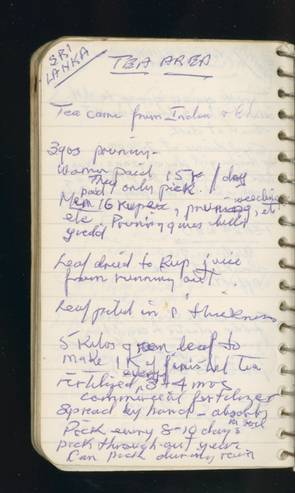 SRI
LANKA
TEA AREA
Tea came from India &
3 yrs pruning -
Women paid 15 R / day
They only pick.
Men paid 16 Rupees, pruning, weeding, etc
etc Pruning gives
yield
Leaf dried to keep juice
from running out
Leaf piled in 8" thickness
5 kilos green leaf to
make 1 K of finished tea
Fertilized every 3-4 mos
commercial fertilizer
spread by hand - absorbs
in soil
Pick every 8-10 days
pick through-out year
Can pick during rain